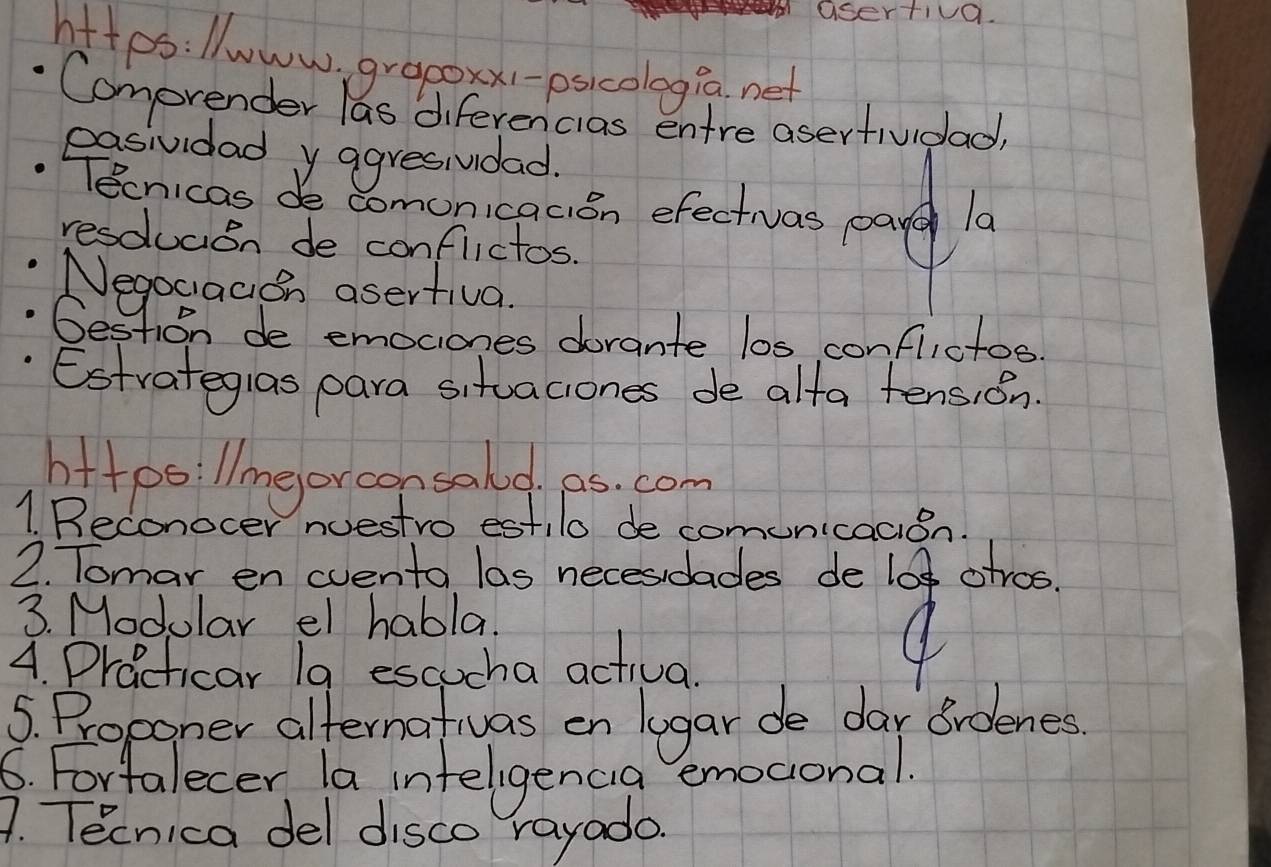 asertiva.
https://www.grupoxxi-psicología.net
• Comprender las diferencias entre asertividad,
pasividad y agresividad.
• Técnicas de comunicación efectivas para la
resolución de conflictos.
• Negociación asertiva.
• Gestión de emociones durante los conflictos.
• Estrategias para situaciones de alta tensión.
https://mejorconsalud.as.com
1. Reconocer nuestro estilo de comunicación.
2. Tomar en cuenta las necesidades de los otros.
3. Modular el habla.
4. Prácticar la escucha activa.
5. Proponer alternativas en lugar de dar órdenes.
6. Fortalecer la inteligencia emocional.
7. Técnica del disco rayado.